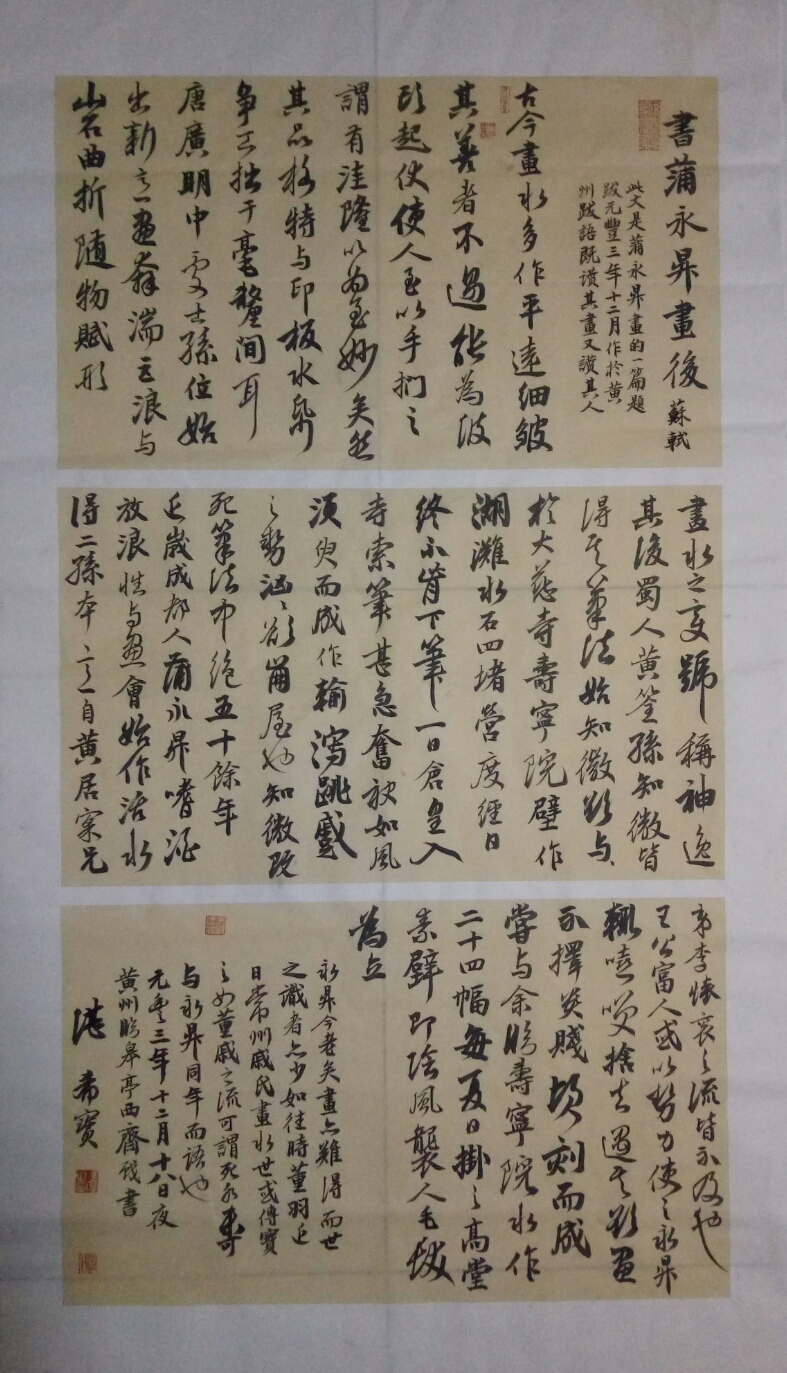 書蒲永昇畫後 蘇軾
此文是蒲永昇畫的一篇題
跋元豐三年十二月作於黃
州跋語既讚其畫又讚其人
古今畫水多作平遠細皴
其善者不過能為波
頭起伏使人至以手捫之
謂有洼隆以為至妙矣然
其品格特与印板水紙
争工拙于毫釐間耳
唐廣明中處士孫位始
出新意畫奔湍巨浪与
山石曲折隨物賦形
畫水之變號稱神逸
其後蜀人黃筌孫知微皆
得其筆法始知微欲与
於大慈寺壽寧院壁作
湖灘水石四堵營度經日
終不肯下筆一日倉皇入
寺索筆甚急奮袂如風
須臾而成作輸瀉跳蹙
之勢洶洶欲崩屋也知微既
死筆法中絕五十餘年
近歲成都人蒲永昇嗜酒
放浪性与畫會始作活水
得二孫本意自黃居寀兄
弟李懷袞之流皆不及也
王公富人或以勢力使之永昇
輒嘻笑捨去遇其欲畫
不擇貴賤頃刻而成
嘗与余臨壽寧院水作
二十四幅每夏日掛之高堂
素壁即陰風襲人毛髮
為立
永昇今老矣畫亦難得而世
之識者亦少如往時董羽近
日常州戚氏畫水世或傳寶
之如董戚之流可謂死水未可
与永昇同年而語也
元豐三年十二月十八日夜
黃州臨皋亭西齋戲書
希寶